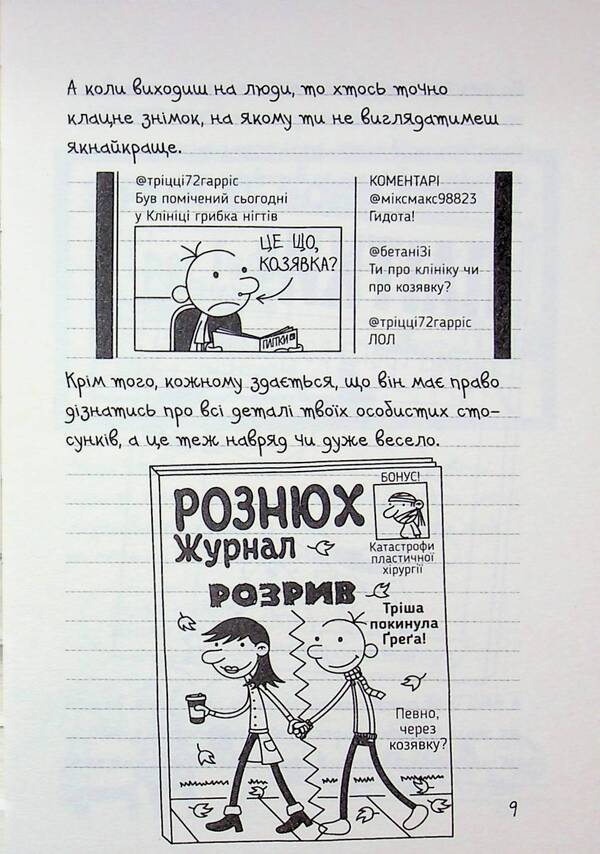 А коли виходиш на люди, то хтось точно
клацне знімок, на якому ти не виглядатимеш
якнайкраще.
@тріцці72гарріс
Був помічений сьогодні
у Клініці грибка нігтів
ЦЕ ЩО,
КОЗЯВКА?
ПЛІТКИ
КОМЕНТАРІ
@міксмакс98823
Гидота!
@бетаніЗі
Ти про клініку чи
про козявку?
@тріцці72гарріс
ЛОЛ
Крім того, кожному здається, що він має право
дізнатись про всі деталі твоїх особистих сто-
сунків, а це теж навряд чи дуже весело.
РОЗНЮХ
Журнал
БОНУС!
Катастрофи
пластичної
хірургії
РОЗРИВ
Тріша
покинула
Ґреґа!
Певно,
через
козявку?
9